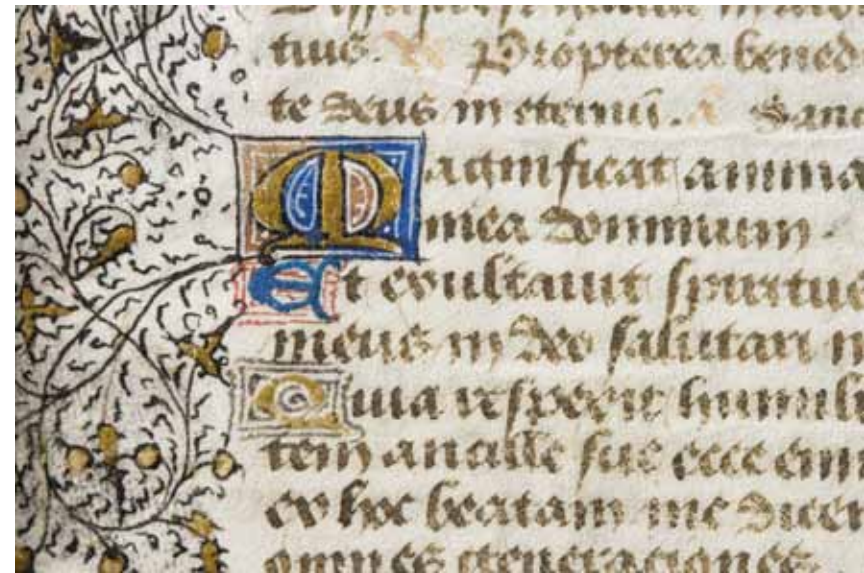 tuus. V Propterea bened
te deus in eternū. A Sanc
Magnificat anima
mea dominum.
Et exultauit spiritus
meus in deo salutari m
Quia respexit humili
tem ancille sue ecce eni
ex hoc beatam me dicen
omnes generationes